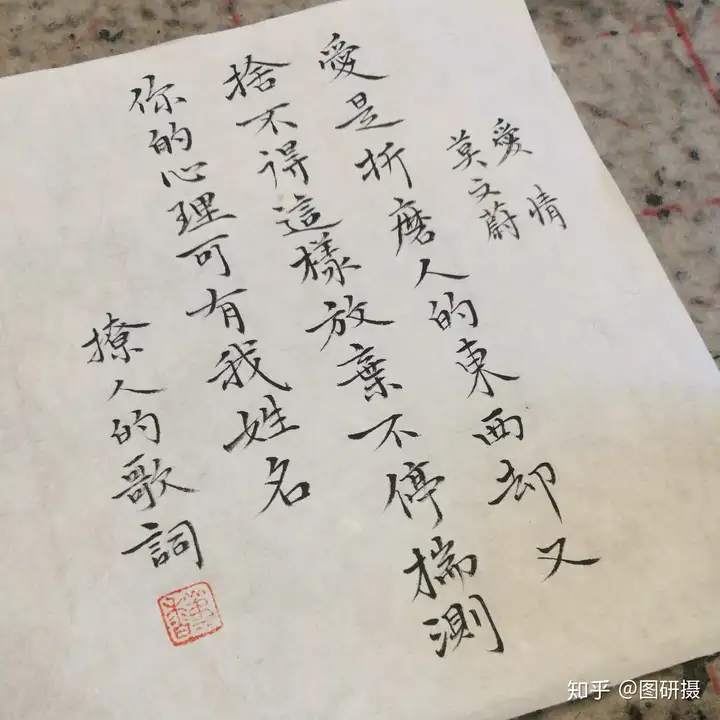 愛情
莫文蔚
愛是折磨人的東西却又
捨不得這樣放棄不停揣測
你的心理可有我姓名
撩人的歌詞
知乎 @图研摄